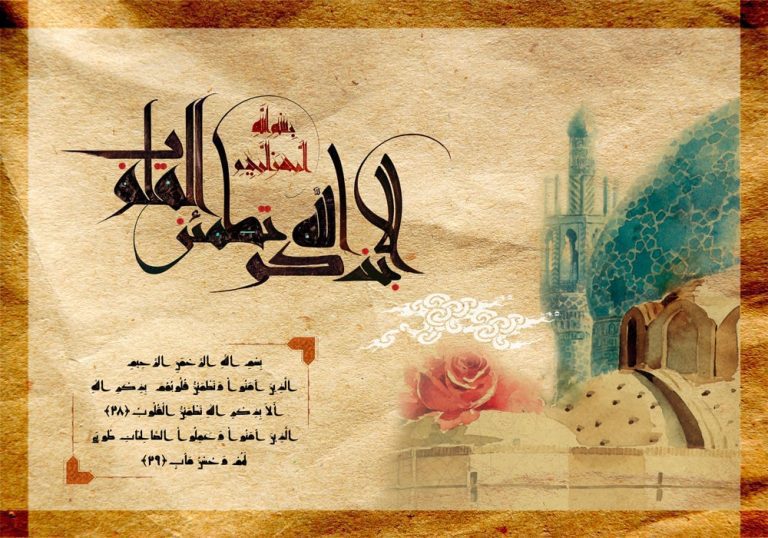 بسم الله
الرحمن الرحيم
ألا بذكر الله تطمئن القلوب
بسم الله الرحمن الرحيم
الَّذِينَ آمَنُواْ وَتَطْمَئِنُّ قُلُوبُهُم بِذِكْرِ اللّهِ
أَلاَ بِذِكْرِ اللّهِ تَطْمَئِنُّ الْقُلُوبُ ﴿۲۸﴾
الَّذِينَ آمَنُواْ وَعَمِلُواْ الصَّالِحَاتِ طُوبَى
لَهُمْ وَحُسْنُ مَآبٍ ﴿۲۹﴾